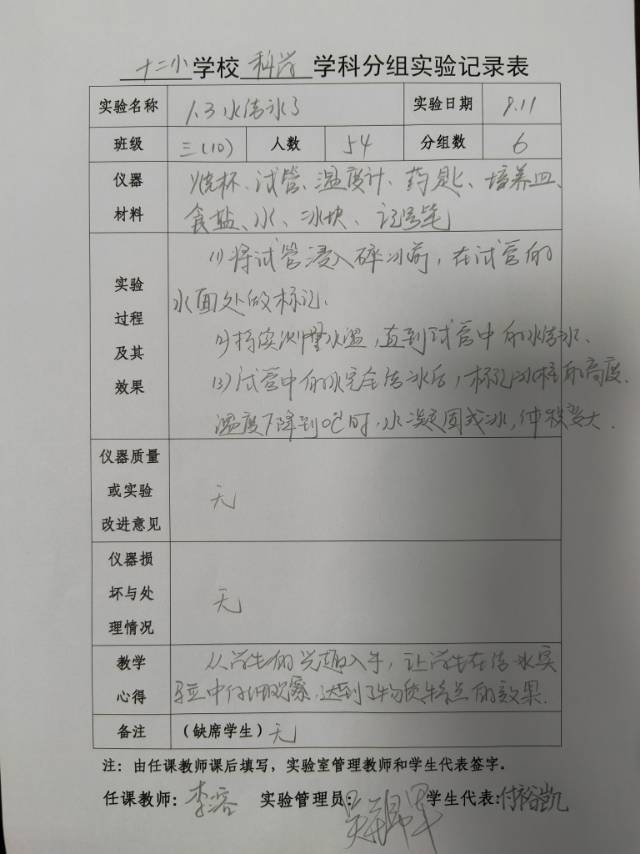 十二小学校 科学 学科分组实验记录表
实验名称 1.3水结冰了 实验日期 9.11
班级 三(10) 人数 54 分组数 6
仪器材料
烧杯、试管、温度计、药匙、培养皿、
食盐、水、冰块、记号笔
实验过程及其效果
(1)将试管浸入碎冰前,在试管的
水面处做标记.
(2)持续测量水温,直到试管中的水结冰.
(3)试管中的水完全结冰后,标记冰柱的高度.
温度下降到0℃时,水凝固成冰,体积变大.
仪器质量或实验改进意见
无
仪器损坏与处理情况
无
教学心得
从学生的兴趣入手,让学生在结冰实
验中仔细观察.达到了物质特点的效果.
备注 (缺席学生)无
注:由任课教师课后填写,实验室管理教师和学生代表签字。
任课教师:李容 实验管理员: 学生代表:付裕凯